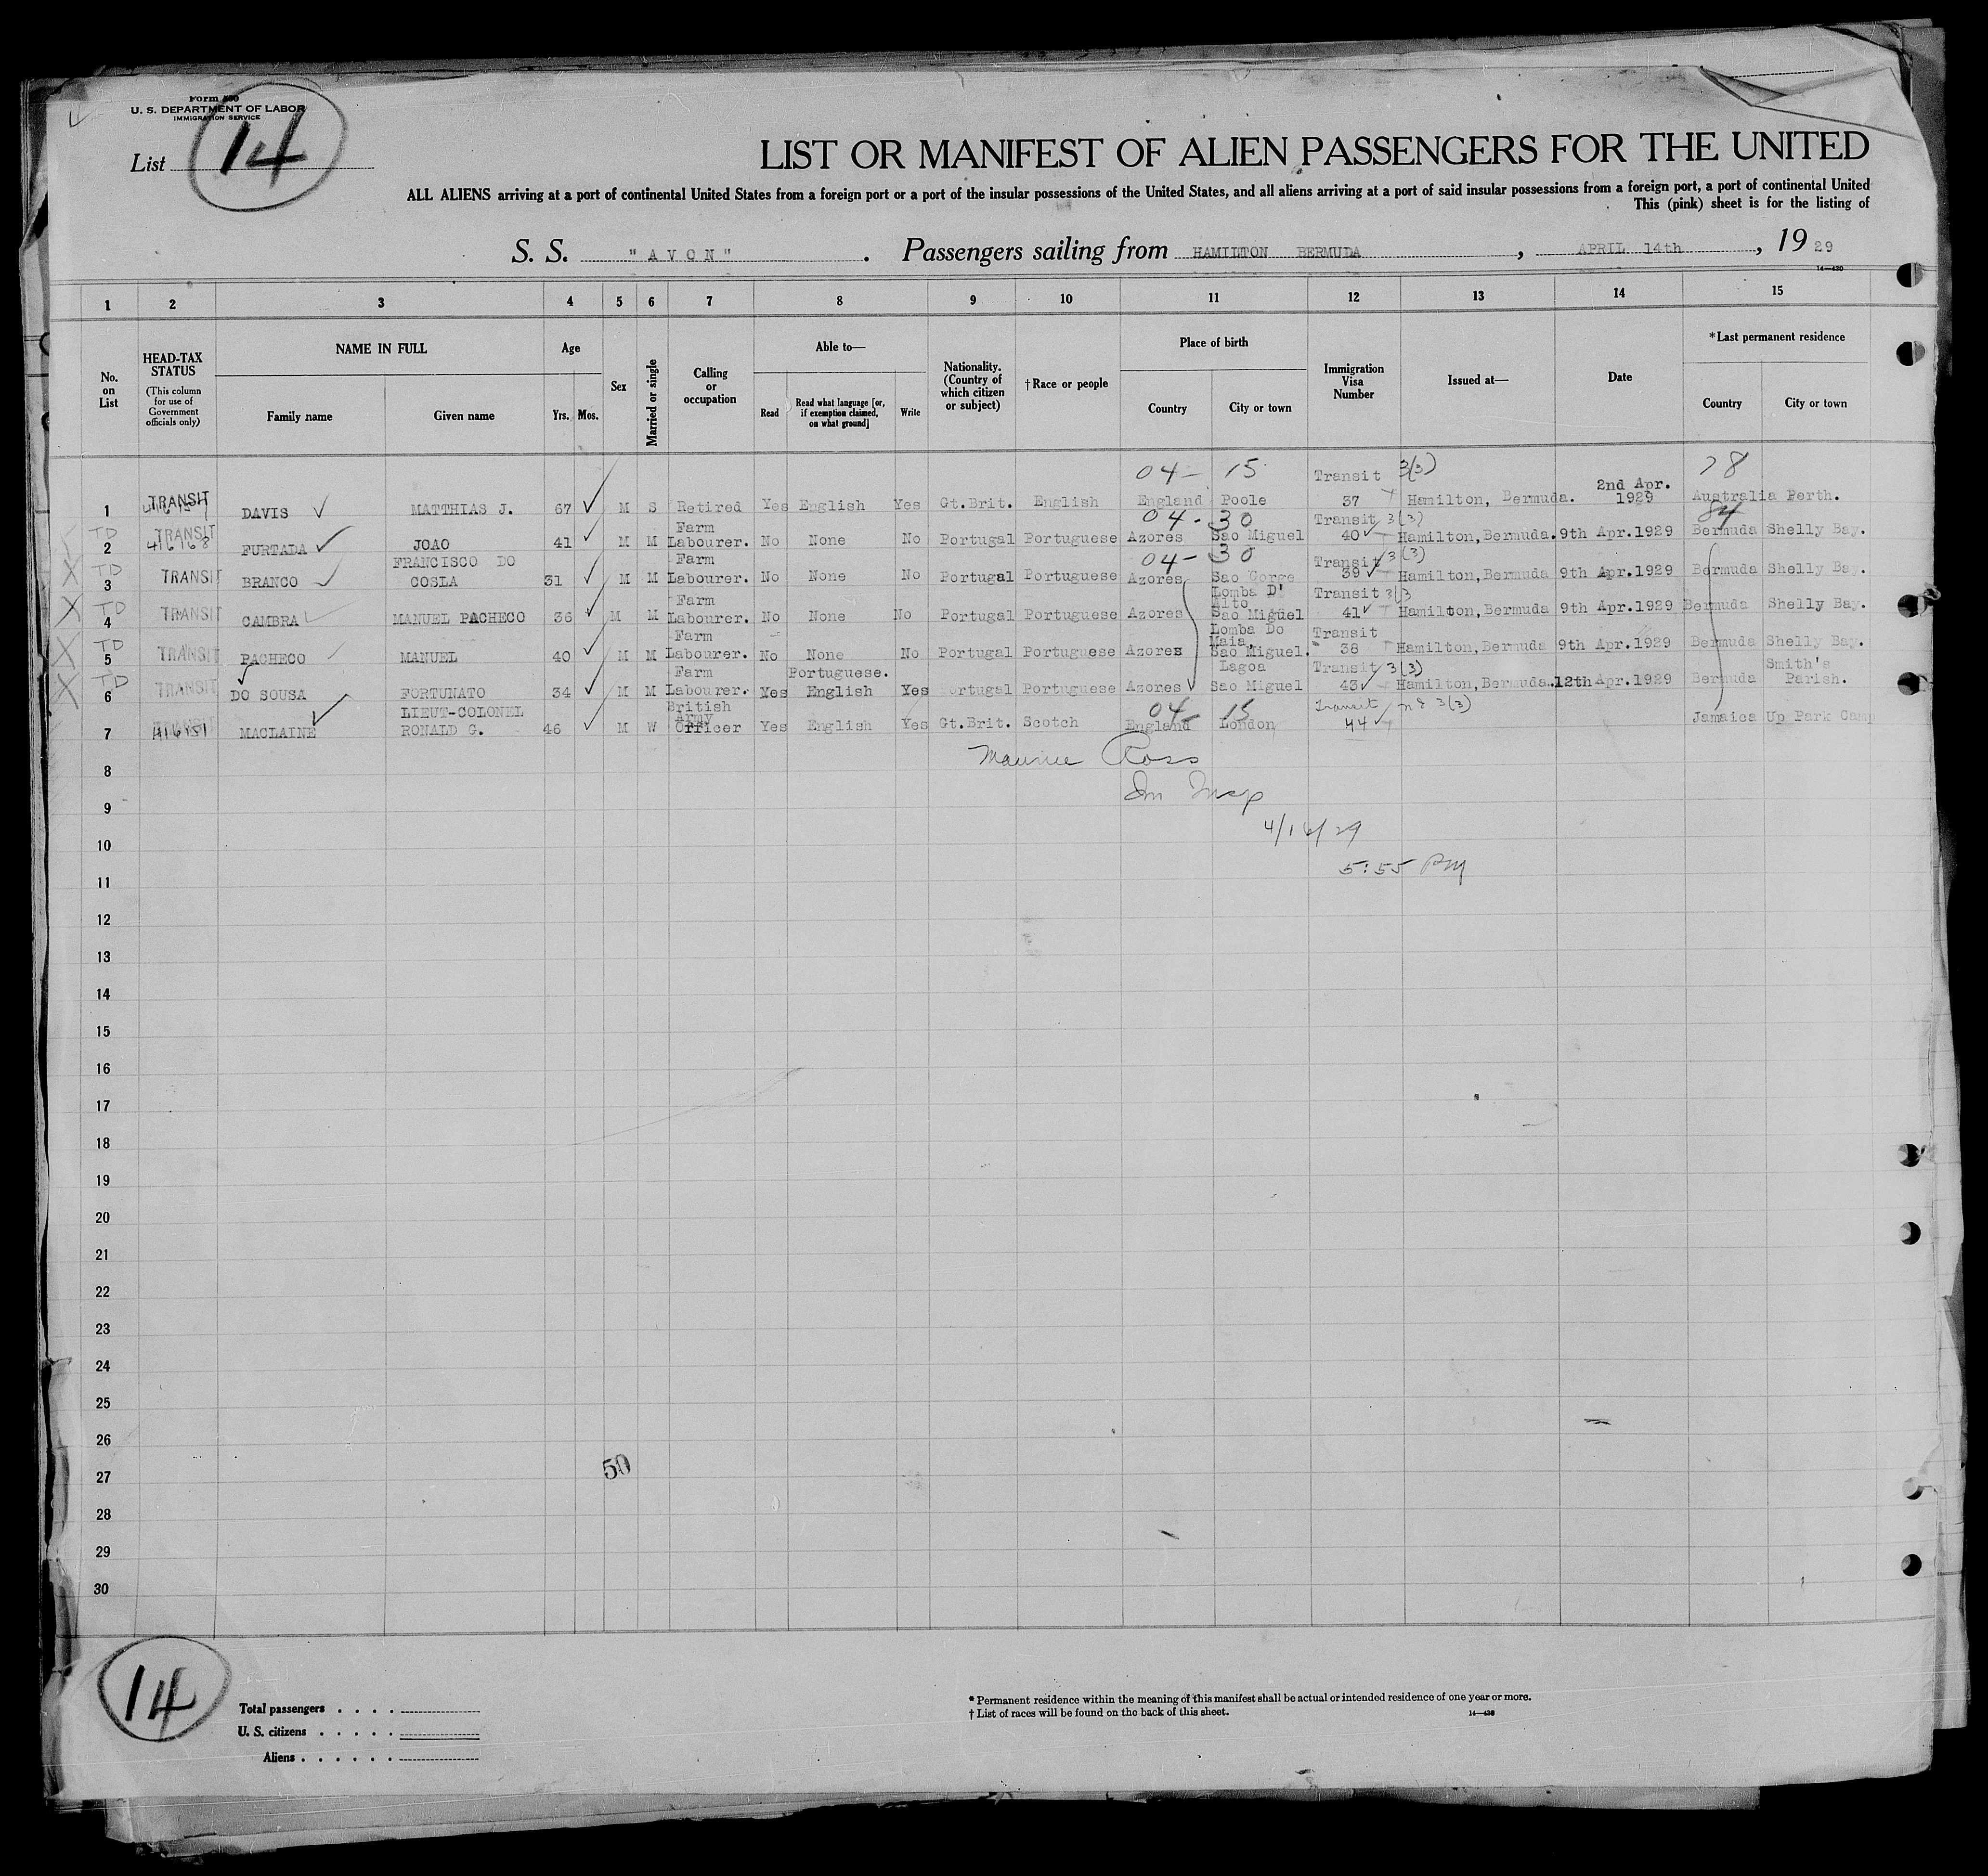 Form 500
U. S. DEPARTMENT OF LABOR
IMMIGRATION SERVICE
List 14
LIST OR MANIFEST OF ALIEN PASSENGERS FOR THE UNITED
ALL ALIENS arriving at a port of continental United States from a foreign port or a port of the insular possessions of the United States, and all aliens arriving at a port of said insular possessions from a foreign port, a port of continental United
This (pink) sheet is for the listing of
S. S. "AVON". Passengers sailing from HAMILTON BERMUDA, APRIL 14th, 1929
14—430
1 2 3 4 5 6 7 8 9 10 11 12 13 14 15
No. on List
HEAD-TAX STATUS (This column for use of Government officials only)
NAME IN FULL Family name Given name
Age Yrs. Mos.
Sex
Married or single
Calling or occupation
Able to— Read Read what language [or, if exemption claimed, on what ground] Write
Nationality. (Country of which citizen or subject)
†Race or people
Place of birth Country City or town
Immigration Visa Number
Issued at—
Date
*Last permanent residence Country City or town
04- 15 3(3) 78
1 TRANSIT DAVIS MATTHIAS J. 67 M S Retired Yes English Yes Gt.Brit. English England Poole Transit 37 Hamilton, Bermuda. 2nd Apr. 1929 Australia Perth.
04-30 84
TD 2 TRANSIT 416168 FURTADA JOAO 41 M M Farm Labourer. No None No Portugal Portuguese Azores Sao Miguel Transit 3(3) 40 Hamilton, Bermuda. 9th Apr.1929 Bermuda Shelly Bay.
04-30
X TD 3 TRANSIT BRANCO FRANCISCO DO COSLA 31 M M Farm Labourer. No None No Portugal Portuguese Azores Sao Gorge Transit 3(3) 39 Hamilton, Bermuda 9th Apr.1929 Bermuda Shelly Bay.
X TD 4 TRANSIT CAMBRA MANUEL PACHECO 36 M M Farm Labourer. No None No Portugal Portuguese Azores Lomba D' Alto Sao Miguel Transit 3(3 41 Hamilton, Bermuda 9th Apr.1929 Bermuda Shelly Bay.
X TD 5 TRANSIT PACHECO MANUEL 40 M M Farm Labourer. No None No Portugal Portuguese Azores Lomba Do Maia, Sao Miguel. Transit 38 Hamilton, Bermuda 9th Apr.1929 Bermuda Shelly Bay.
X TD 6 TRANSIT DO SOUSA FORTUNATO 34 M M Farm Labourer. Yes Portuguese. English Yes Portugal Portuguese Azores Lagoa Sao Miguel Transit 3(3) 43 Hamilton, Bermuda. 12th Apr.1929 Bermuda Smith's Parish.
04- 15
7 TRANSIT MACLAINE LIEUT-COLONEL RONALD G. 46 M W British Army Officer Yes English Yes Gt.Brit. Scotch England London Transit 3(3) 44 Jamaica Up Park Camp
8 Maurice Ross
9 Im Insp
10 4/16/29
11 5:55 PM
12
13
14
15
16
17
18
19
20
21
22
23
24
25
26
27 50
28
29
30
14
Total passengers
U. S. citizens
Aliens
* Permanent residence within the meaning of this manifest shall be actual or intended residence of one year or more.
† List of races will be found on the back of this sheet.
14—430